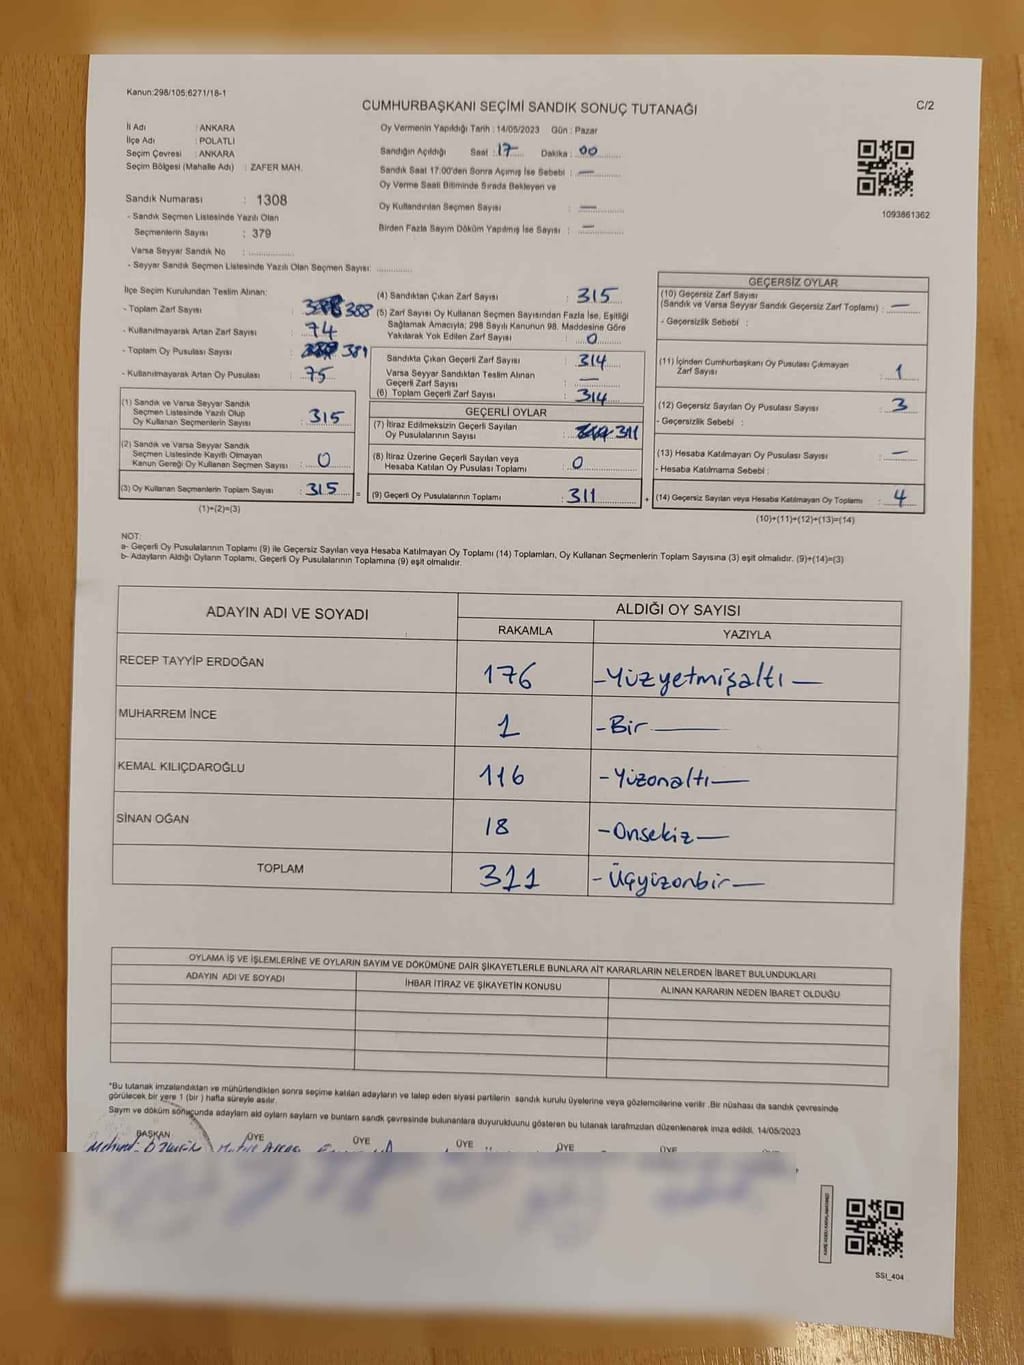 Kanun:298/105;6271/18-1
CUMHURBAŞKANI SEÇİMİ SANDIK SONUÇ TUTANAĞI
C/2
İl Adı : ANKARA
İlçe Adı : POLATLI
Seçim Çevresi : ANKARA
Seçim Bölgesi (Mahalle Adı) : ZAFER MAH.
Sandık Numarası : 1308
- Sandık Seçmen Listesinde Yazılı Olan
Seçmenlerin Sayısı : 379
Varsa Seyyar Sandık No :
- Seyyar Sandık Seçmen Listesinde Yazılı Olan Seçmen Sayısı:
Oy Vermenin Yapıldığı Tarih : 14/05/2023 Gün : Pazar
Sandığın Açıldığı Saat : 17 Dakika : 00
Sandık Saat 17.00'den Sonra Açılmış İse Sebebi : —
Oy Verme Saati Bitiminde Sırada Bekleyen ve
Oy Kullandırılan Seçmen Sayısı : —
Birden Fazla Sayım Döküm Yapılmış İse Sayısı : —
1093861362
İlçe Seçim Kurulundan Teslim Alınan:
- Toplam Zarf Sayısı : 388
- Kullanılmayarak Artan Zarf Sayısı : 74
- Toplam Oy Pusulası Sayısı :
- Kullanılmayarak Artan Oy Pusulası : 75
(1) Sandık ve Varsa Seyyar Sandık
Seçmen Listesinde Yazılı Olup
Oy Kullanan Seçmenlerin Sayısı : 315
(2) Sandık ve Varsa Seyyar Sandık
Seçmen Listesinde Kayıtlı Olmayan
Kanun Gereği Oy Kullanan Seçmen Sayısı : 0
(3) Oy Kullanan Seçmenlerin Toplam Sayısı : 315
(1)+(2)=(3)
(4) Sandıktan Çıkan Zarf Sayısı : 315
(5) Zarf Sayısı Oy Kullanan Seçmen Sayısından Fazla İse, Eşitliği
Sağlamak Amacıyla; 298 Sayılı Kanunun 98. Maddesine Göre
Yakılarak Yok Edilen Zarf Sayısı : 0
Sandıkta Çıkan Geçerli Zarf Sayısı : 314
Varsa Seyyar Sandıktan Teslim Alınan
Geçerli Zarf Sayısı : —
(6) Toplam Geçerli Zarf Sayısı : 314
GEÇERLİ OYLAR
(7) İtiraz Edilmeksizin Geçerli Sayılan
Oy Pusulalarının Sayısı : 311
(8) İtiraz Üzerine Geçerli Sayılan veya
Hesaba Katılan Oy Pusulası Toplamı : 0
= (9) Geçerli Oy Pusulalarının Toplamı : 311
GEÇERSİZ OYLAR
(10) Geçersiz Zarf Sayısı
(Sandık ve Varsa Seyyar Sandık Geçersiz Zarf Toplamı) : —
- Geçersizlik Sebebi :
(11) İçinden Cumhurbaşkanı Oy Pusulası Çıkmayan
Zarf Sayısı : 1
(12) Geçersiz Sayılan Oy Pusulası Sayısı : 3
- Geçersizlik Sebebi :
(13) Hesaba Katılmayan Oy Pusulası Sayısı : —
- Hesaba Katılmama Sebebi :
+ (14) Geçersiz Sayılan veya Hesaba Katılmayan Oy Toplamı : 4
(10)+(11)+(12)+(13)=(14)
NOT:
a- Geçerli Oy Pusulalarının Toplamı (9) ile Geçersiz Sayılan veya Hesaba Katılmayan Oy Toplamı (14) Toplamları, Oy Kullanan Seçmenlerin Toplam Sayısına (3) eşit olmalıdır. (9)+(14)=(3)
b- Adayların Aldığı Oyların Toplamı, Geçerli Oy Pusulalarının Toplamına (9) eşit olmalıdır.
ADAYIN ADI VE SOYADI
ALDIĞI OY SAYISI
RAKAMLA YAZIYLA
RECEP TAYYİP ERDOĞAN 176 -Yüzyetmişaltı—
MUHARREM İNCE 1 -Bir—
KEMAL KILIÇDAROĞLU 116 -Yüzonaltı—
SİNAN OĞAN 18 -Onsekiz—
TOPLAM 311 -Üçyüzonbir—
OYLAMA İŞ VE İŞLEMLERİNE VE OYLARIN SAYIM VE DÖKÜMÜNE DAİR ŞİKAYETLERLE BUNLARA AİT KARARLARIN NELERDEN İBARET BULUNDUKLARI
ADAYIN ADI VE SOYADI İHBAR İTİRAZ VE ŞİKAYETİN KONUSU ALINAN KARARIN NEDEN İBARET OLDUĞU
*Bu tutanak imzalandıktan ve mühürlendikten sonra seçime katılan adayların ve talep eden siyasi partilerin sandık kurulu üyelerine veya gözlemcilerine verilir .Bir nüshası da sandık çevresinde
görülecek bir yere 1 (bir ) hafta süreyle asılır.
Sayım ve döküm sonucunda adayların ald oyların sayların ve bunların sandk çevresinde bulunanlara duyurulduunu gösteren bu tutanak tarafmzdan düzenlenerek imza edildi. 14/05/2023
BAŞKAN ÜYE ÜYE ÜYE ÜYE ÜYE
SSI_404